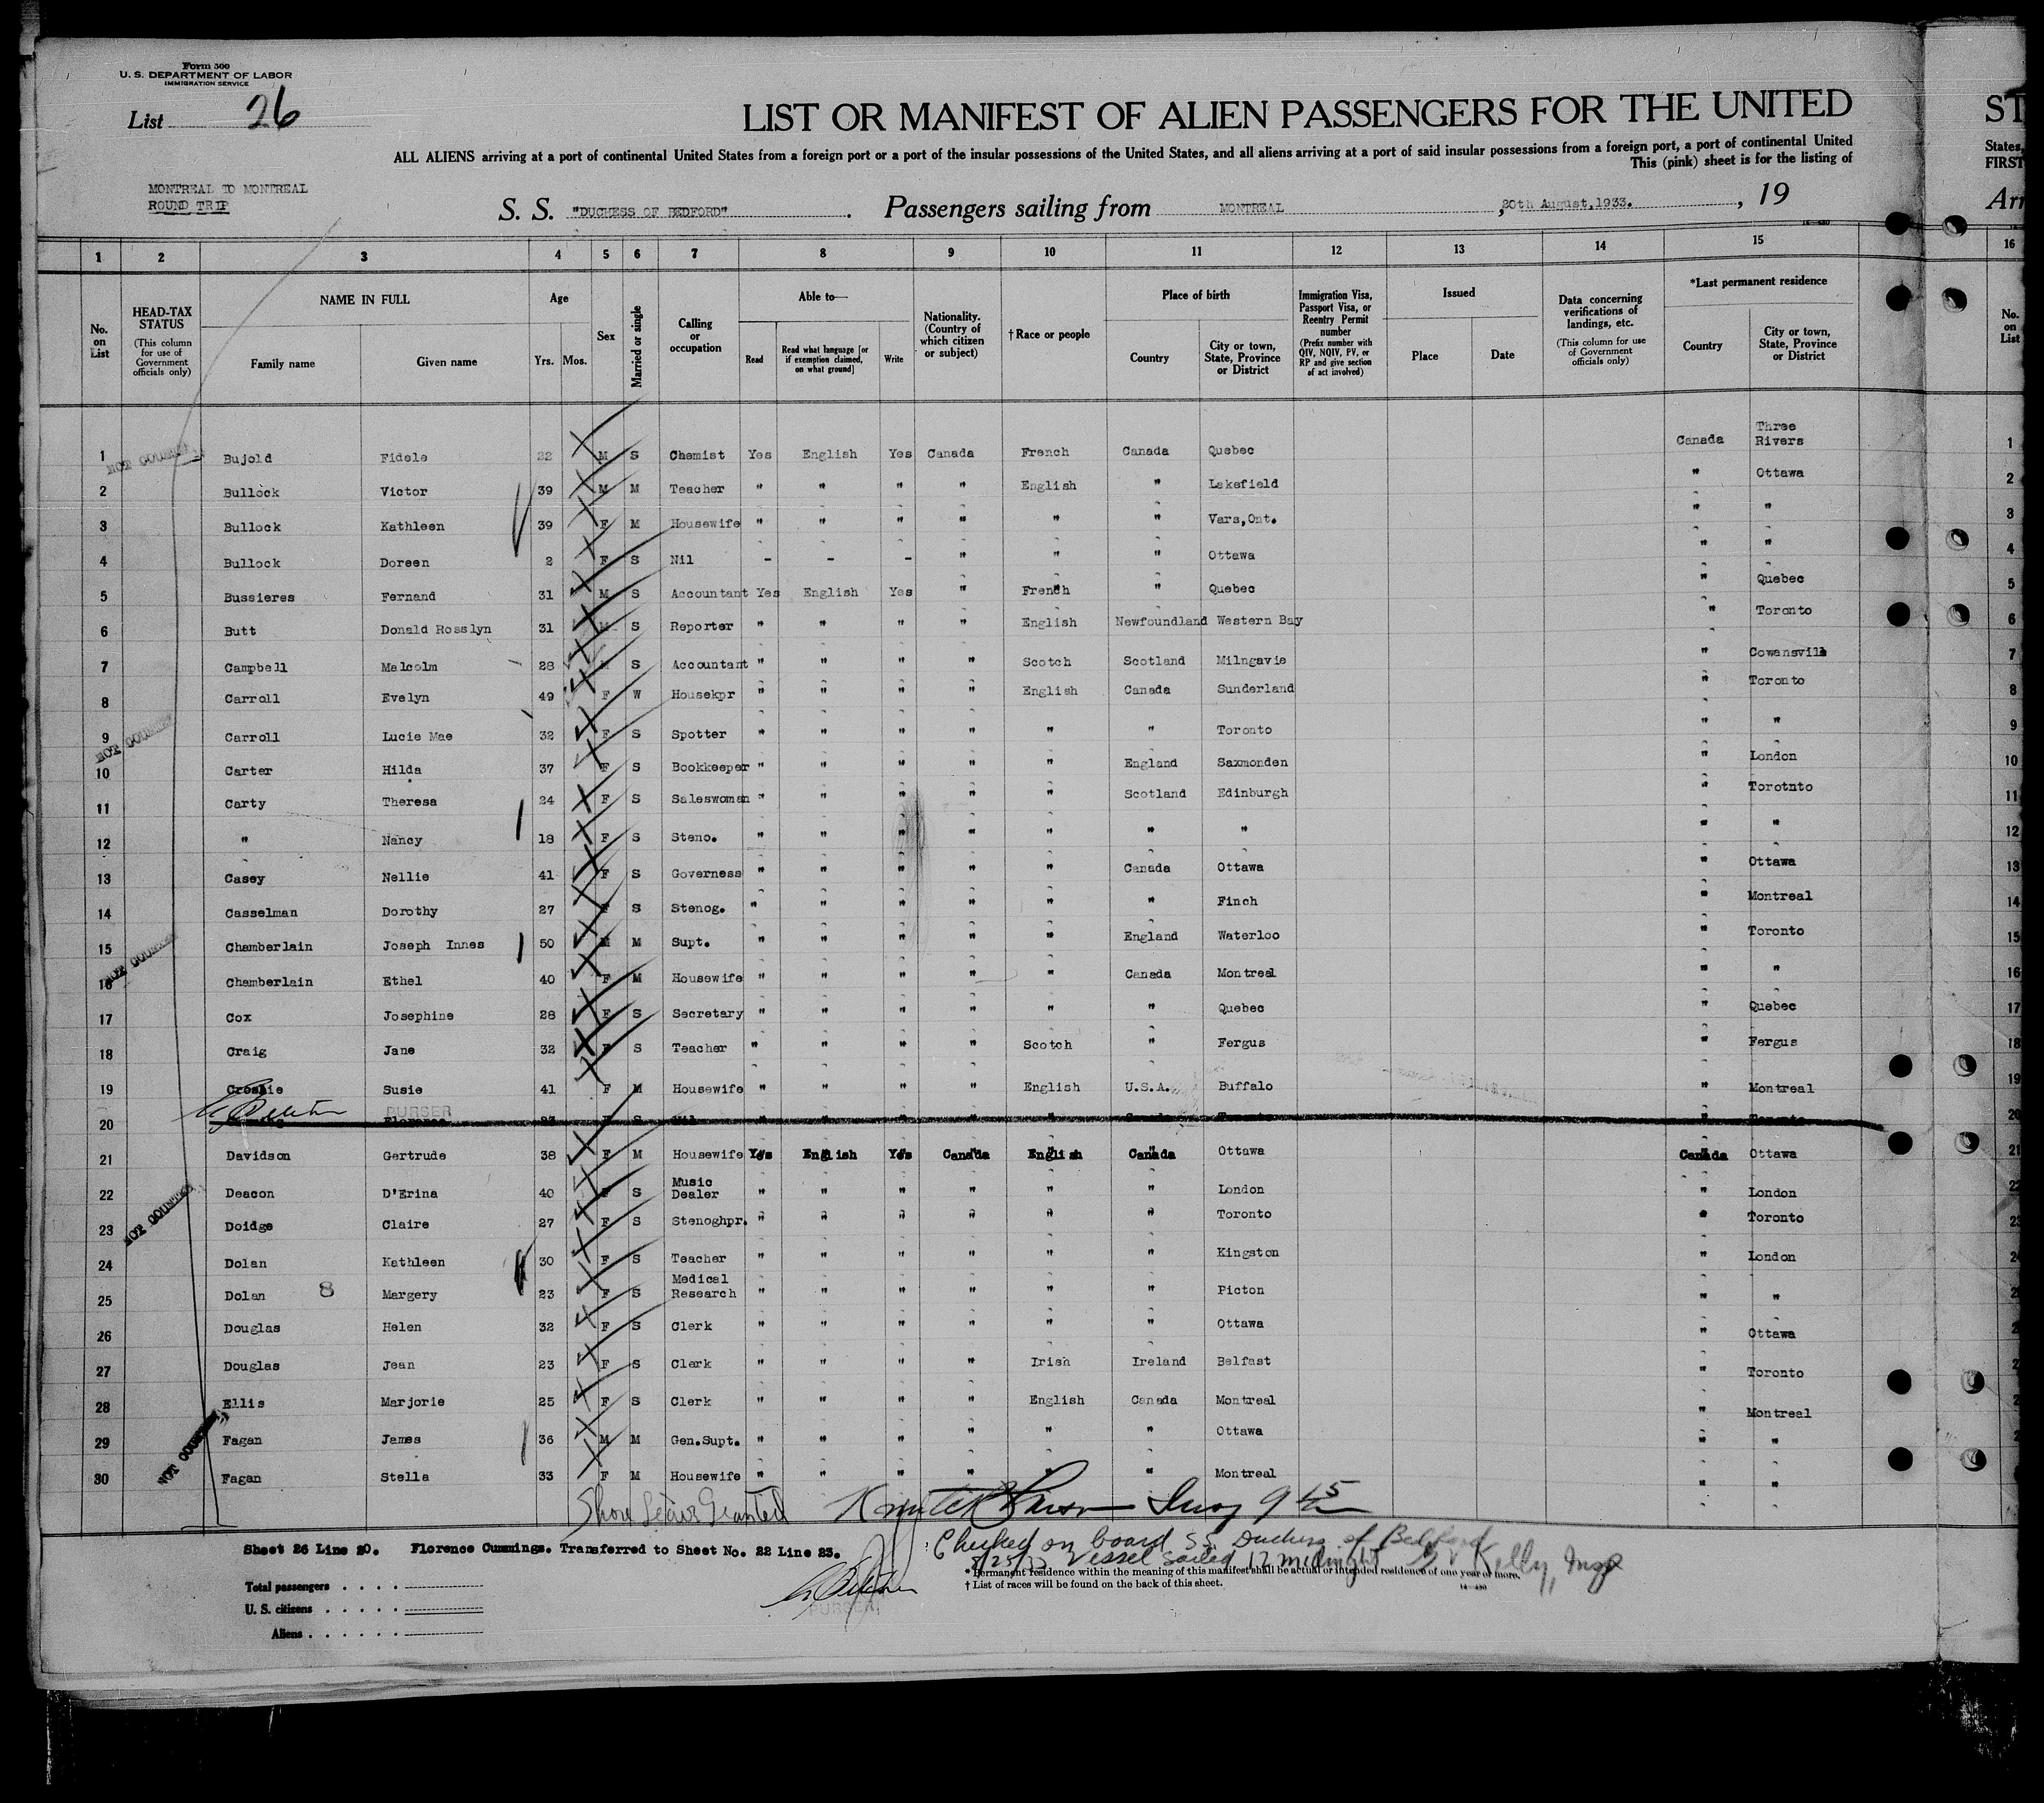 Form 500
U. S. DEPARTMENT OF LABOR
IMMIGRATION SERVICE
List 26
LIST OR MANIFEST OF ALIEN PASSENGERS FOR THE UNITED ST
ALL ALIENS arriving at a port of continental United States from a foreign port or a port of the insular possessions of the United States, and all aliens arriving at a port of said insular possessions from a foreign port, a port of continental United States,
This (pink) sheet is for the listing of FIRST
MONTREAL TO MONTREAL
ROUND TRIP
S. S. "DUCHESS OF BEDFORD". Passengers sailing from MONTREAL, 20th August, 1933., 19 Arr
1 2 3 4 5 6 7 8 9 10 11 12 13 14 15 16
No. on List
HEAD-TAX STATUS (This column for use of Government officials only)
NAME IN FULL
Family name Given name
Age Yrs. Mos.
Sex
Married or single
Calling or occupation
Able to—
Read Read what language [or if exemption claimed, on what ground] Write
Nationality. (Country of which citizen or subject)
†Race or people
Place of birth
Country City or town, State, Province or District
Immigration Visa, Passport Visa, or Reentry Permit number (Prefix number with QIV, NQIV, PV, or RP and give section of act involved)
Issued
Place Date
Data concerning verifications of landings, etc. (This column for use of Government officials only)
*Last permanent residence
Country City or town, State, Province or District
No. on List
1 Bujold Fidele 22 M S Chemist Yes English Yes Canada French Canada Quebec Canada Three Rivers 1
2 Bullock Victor 39 M M Teacher " " " " English " Lakefield " Ottawa 2
3 Bullock Kathleen 39 F M Housewife " " " " " " Vars, Ont. " " 3
4 Bullock Doreen 2 F S Nil - - - " " " Ottawa " " 4
5 Bussieres Fernand 31 M S Accountant Yes English Yes " French " Quebec " Quebec 5
6 Butt Donald Rosslyn 31 M S Reporter " " " " English Newfoundland Western Bay " Toronto 6
7 Campbell Malcolm 28 M S Accountant " " " " Scotch Scotland Milngavie " Cowansvill 7
8 Carroll Evelyn 49 F W Housekpr " " " " English Canada Sunderland " Toronto 8
9 Carroll Lucie Mae 32 F S Spotter " " " " " " Toronto " " 9
10 Carter Hilda 37 F S Bookkeeper " " " " " England Saxmonden " London 10
11 Carty Theresa 24 F S Saleswoman " " " " " Scotland Edinburgh " Torotnto 11
12 " Nancy 18 F S Steno. " " " " " " " " " 12
13 Casey Nellie 41 F S Governess " " " " " Canada Ottawa " Ottawa 13
14 Casselman Dorothy 27 F S Stenog. " " " " " " Finch " Montreal 14
15 Chamberlain Joseph Innes 50 M M Supt. " " " " " England Waterloo " Toronto 15
16 Chamberlain Ethel 40 F M Housewife " " " " " Canada Montreal " " 16
17 Cox Josephine 28 F S Secretary " " " " " " Quebec " Quebec 17
18 Craig Jane 32 F S Teacher " " " " Scotch " Fergus " Fergus 18
19 Crosbie Susie 41 F M Housewife " " " " English U.S.A. Buffalo " Montreal 19
PURSER
20 Florence F S Nil " " " " " Canada Toronto " Toronto 20
21 Davidson Gertrude 38 F M Housewife Yes English Yes Canada English Canada Ottawa Canada Ottawa 21
22 Deacon D'Erina 40 F S Music Dealer " " " " " " London " London 22
23 Doidge Claire 27 F S Stenoghpr. " " " " " " Toronto " Toronto 23
24 Dolan Kathleen 30 F S Teacher " " " " " " Kingston " London 24
25 Dolan 8 Margery 23 F S Medical Research " " " " " " Picton " " 2
26 Douglas Helen 32 F S Clerk " " " " " " Ottawa " Ottawa 2
27 Douglas Jean 23 F S Clerk " " " " Irish Ireland Belfast " Toronto 2
28 Ellis Marjorie 25 F S Clerk " " " " English Canada Montreal " Montreal 2
29 Fagan James 36 M M Gen.Supt. " " " " " " Ottawa " " 2
30 Fagan Stella 33 F M Housewife " " " " " " Montreal " "
NOT COUNTED
NOT COUNTED
NOT COUNTED
NOT COUNTED
NOT COUNTED
Shore Leave Granted
Sheet 26 Line 20. Florence Cummings. Transferred to Sheet No. 22 Line 23.
Checked on board SS. Duchess of Bedford
8/25/33 Vessel sailed 12 midnight Kelly, Insp
Total passengers
U. S. citizens
Aliens
PURSER
* Permanent residence within the meaning of this manifest shall be actual or intended residence of one year or more.
† List of races will be found on the back of this sheet.
14—480